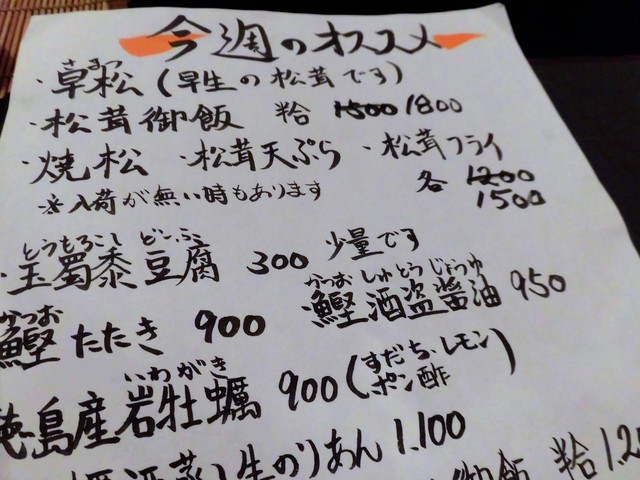 今週のオススメ
さまつ
・草松(早生の松茸です)
・松茸御飯 1500 1800
・焼松 ・松茸天ぷら ・松茸フライ
※入荷が無い時もあります 各 1200
1500
とうもろこし どうふ
・玉蜀黍豆腐 300 少量です
かつお しゅとう じょうゆ
鰹酒盗醤油 950
かつお
鰹たたき 900
いわがき
徳島産岩牡蠣 900(すだち、レモン
ポン酢)
酒蒸し生のりあん 1.100
御飯